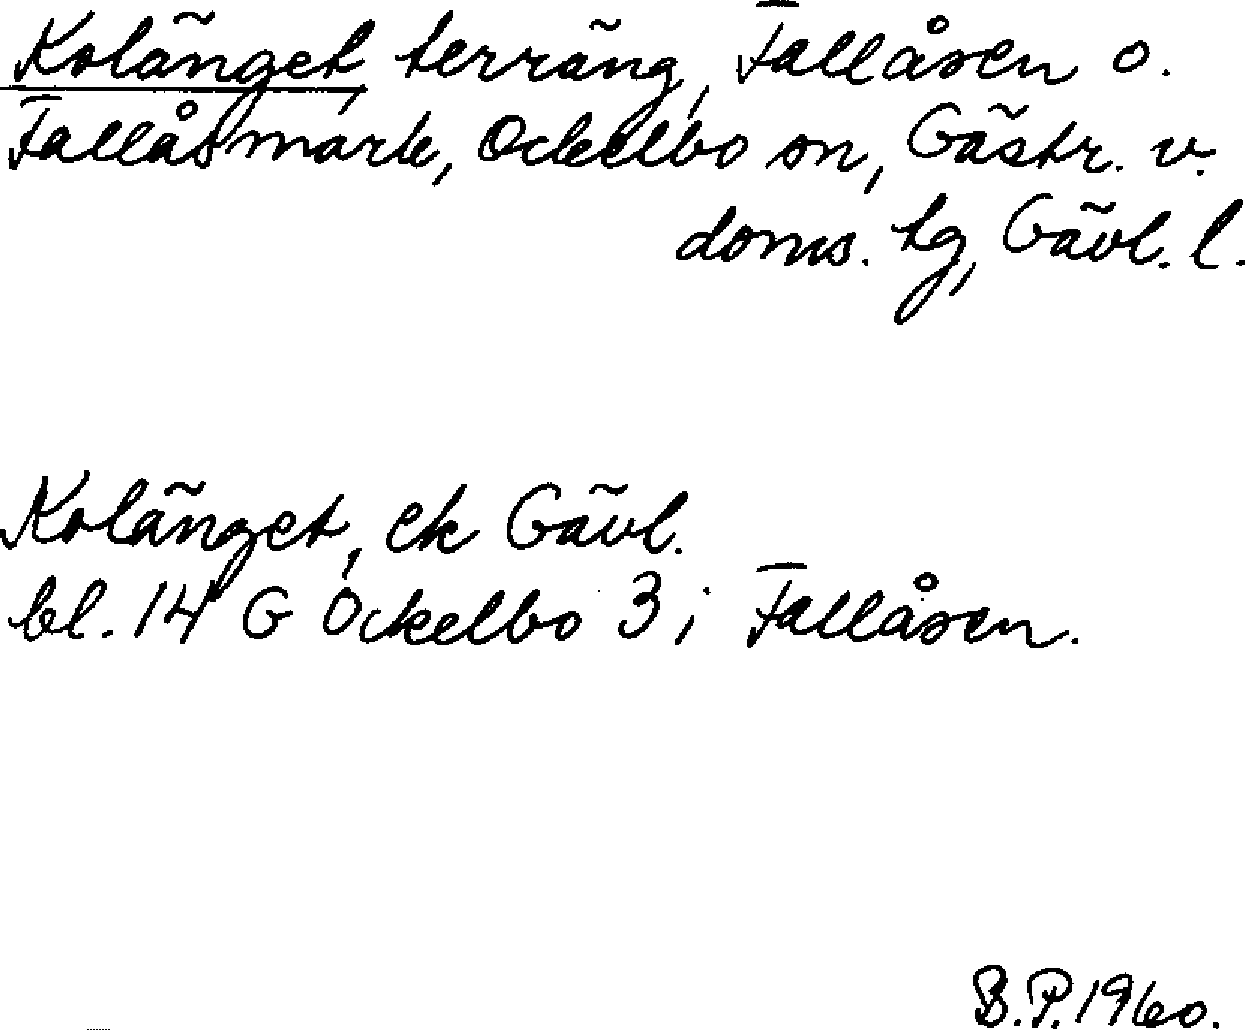 Kolänget, terräng, Fallåsen o.
Fallåsmark, Ockelbo sn, Gästr. v.
doms. tg, Gävl. l.
Kolänget, ek Gävl.
bl. 14 G Ockelbo 3 i Fallåsen.
B.P. 1960.